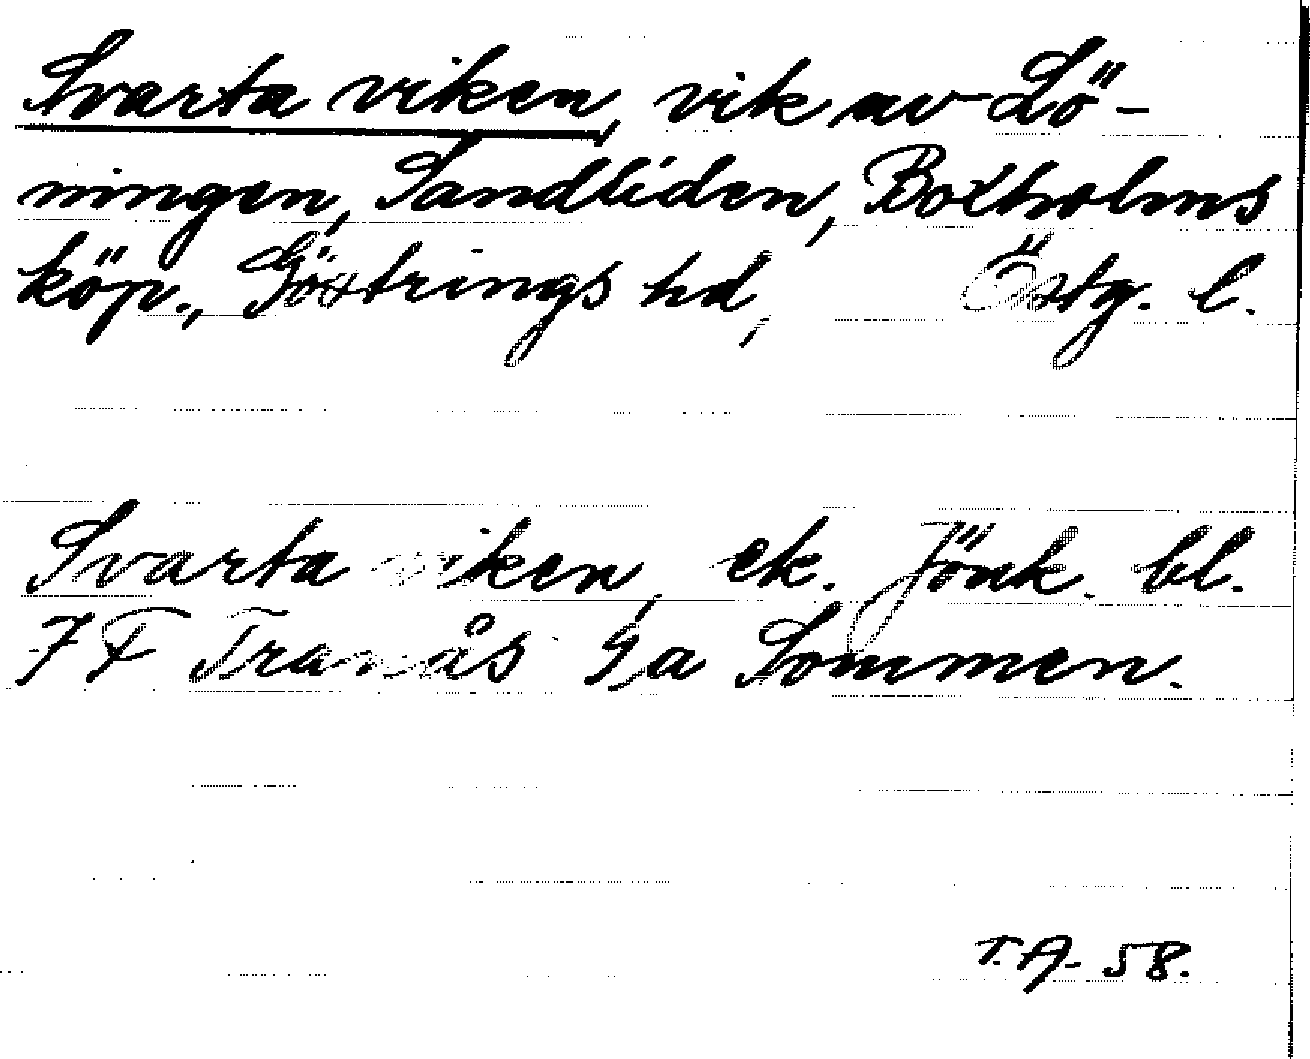 Svarta viken, vik av Lö-
ningen, Sandliden, Boxholms
köp., Göstrings hd, Östg. l.
Svarta viken, ek. Jönk. bl.
7 F Tranås Sommen.
T.A. 58.